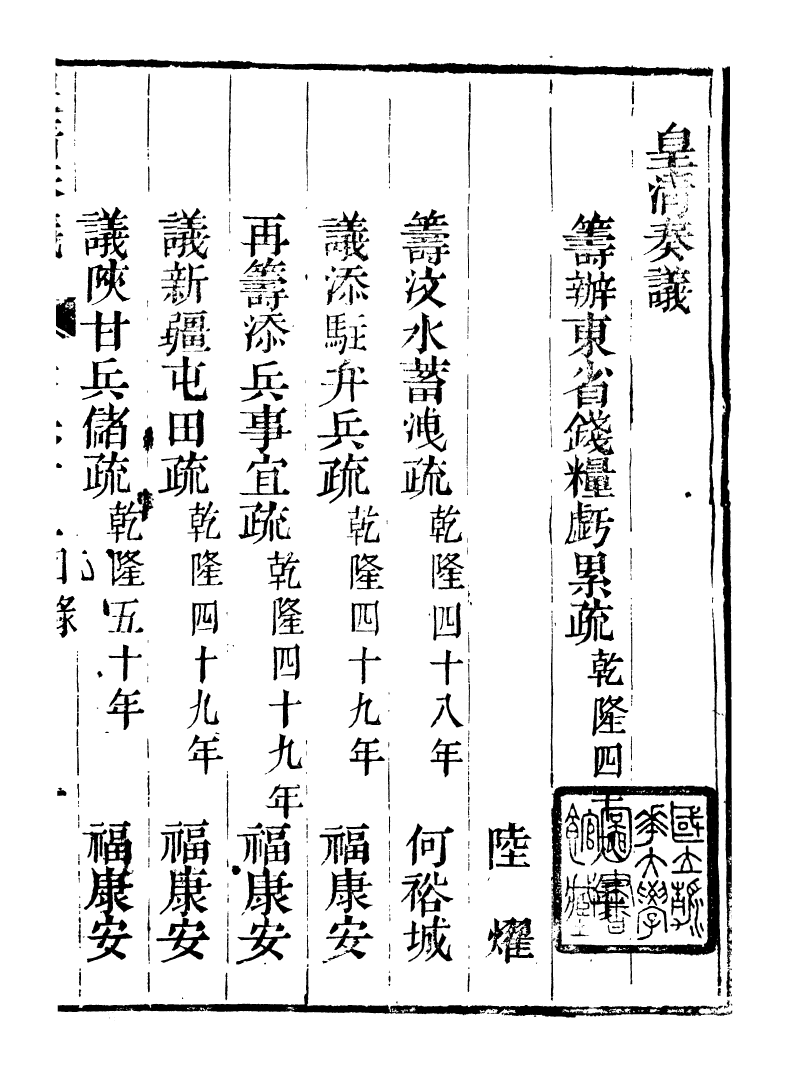 皇清奏議
籌辦東省錢糧虧累疏 乾隆四十
陸燿
籌汶水蓄洩疏 乾隆四十八年 何裕城
議添駐弁兵疏 乾隆四十九年 福康安
再籌添兵事宜疏 乾隆四十九年 福康安
議新疆屯田疏 乾隆四十九年 福康安
議陝甘兵儲疏 乾隆五十年 福康安
目錄
國立清華大學圖書館藏